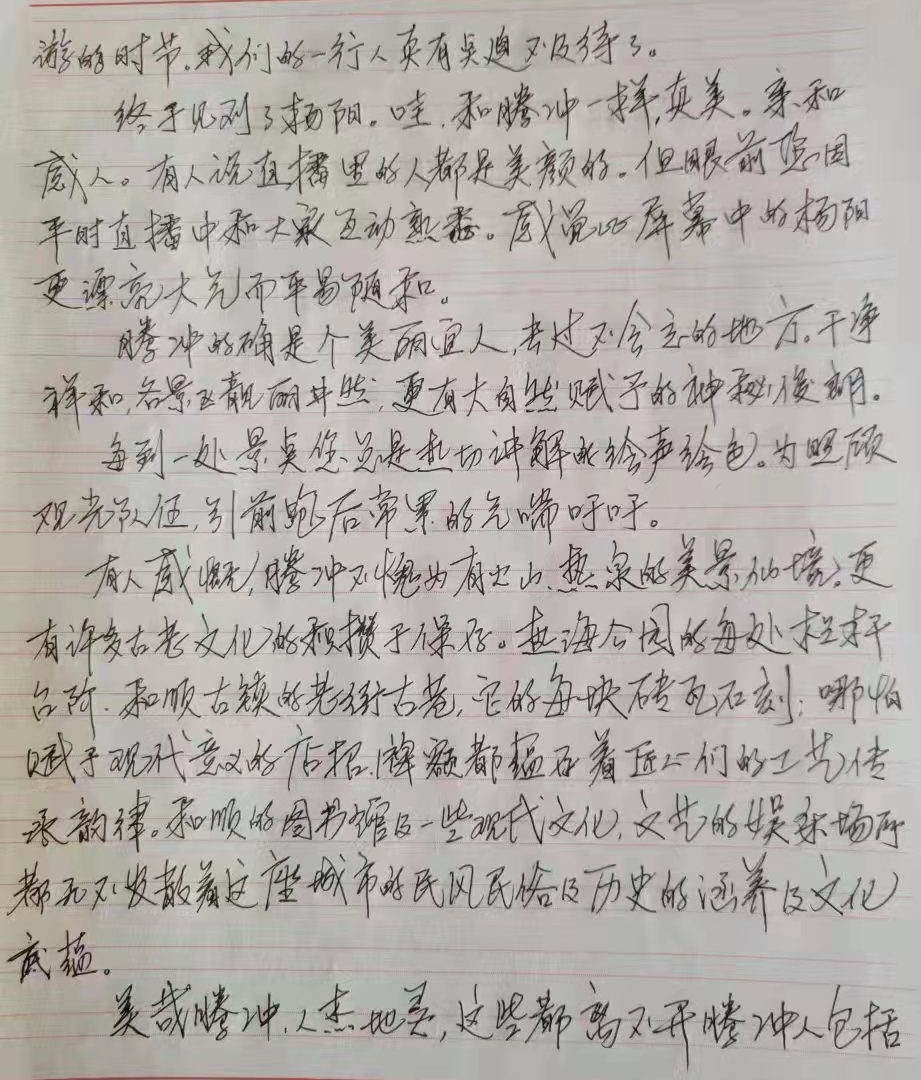 游的时节。我们的一行人真有点迫不及待了。
终于见到了杨阳。哇,和腾冲一样,真美。亲和
感人。有人说直播里的人都是美颜的。但眼前您因
平时直播中和大家互动熟悉。感觉比屏幕中的杨阳
更漂亮大气而平易随和。
腾冲的确是个美丽宜人,去过不会忘的地方。干净
祥和,各景区靓丽井然,更有大自然赋予的神秘
每到一处景点您总是热切讲解的绘声绘色。为照顾
观光队伍,引前跑后常累的气喘吁吁。
有人感慨,腾冲不愧为有火山、热泉的美景仙境,更
有许多古老文化的积攒于保存。热海公园的每处栏杆
台阶、和顺古镇的老街古巷,它的每块砖瓦石刻;哪怕
赋于现代意义的店招,牌额都蕴存着匠人们的工艺传
承韵律。和顺的图书馆及一些现代文化,文艺的娱乐场所
都无不发散着这座城市的民风民俗及历史的涵养及文化
底蕴。
美哉腾冲,人杰地灵,这些都离不开腾冲人包括